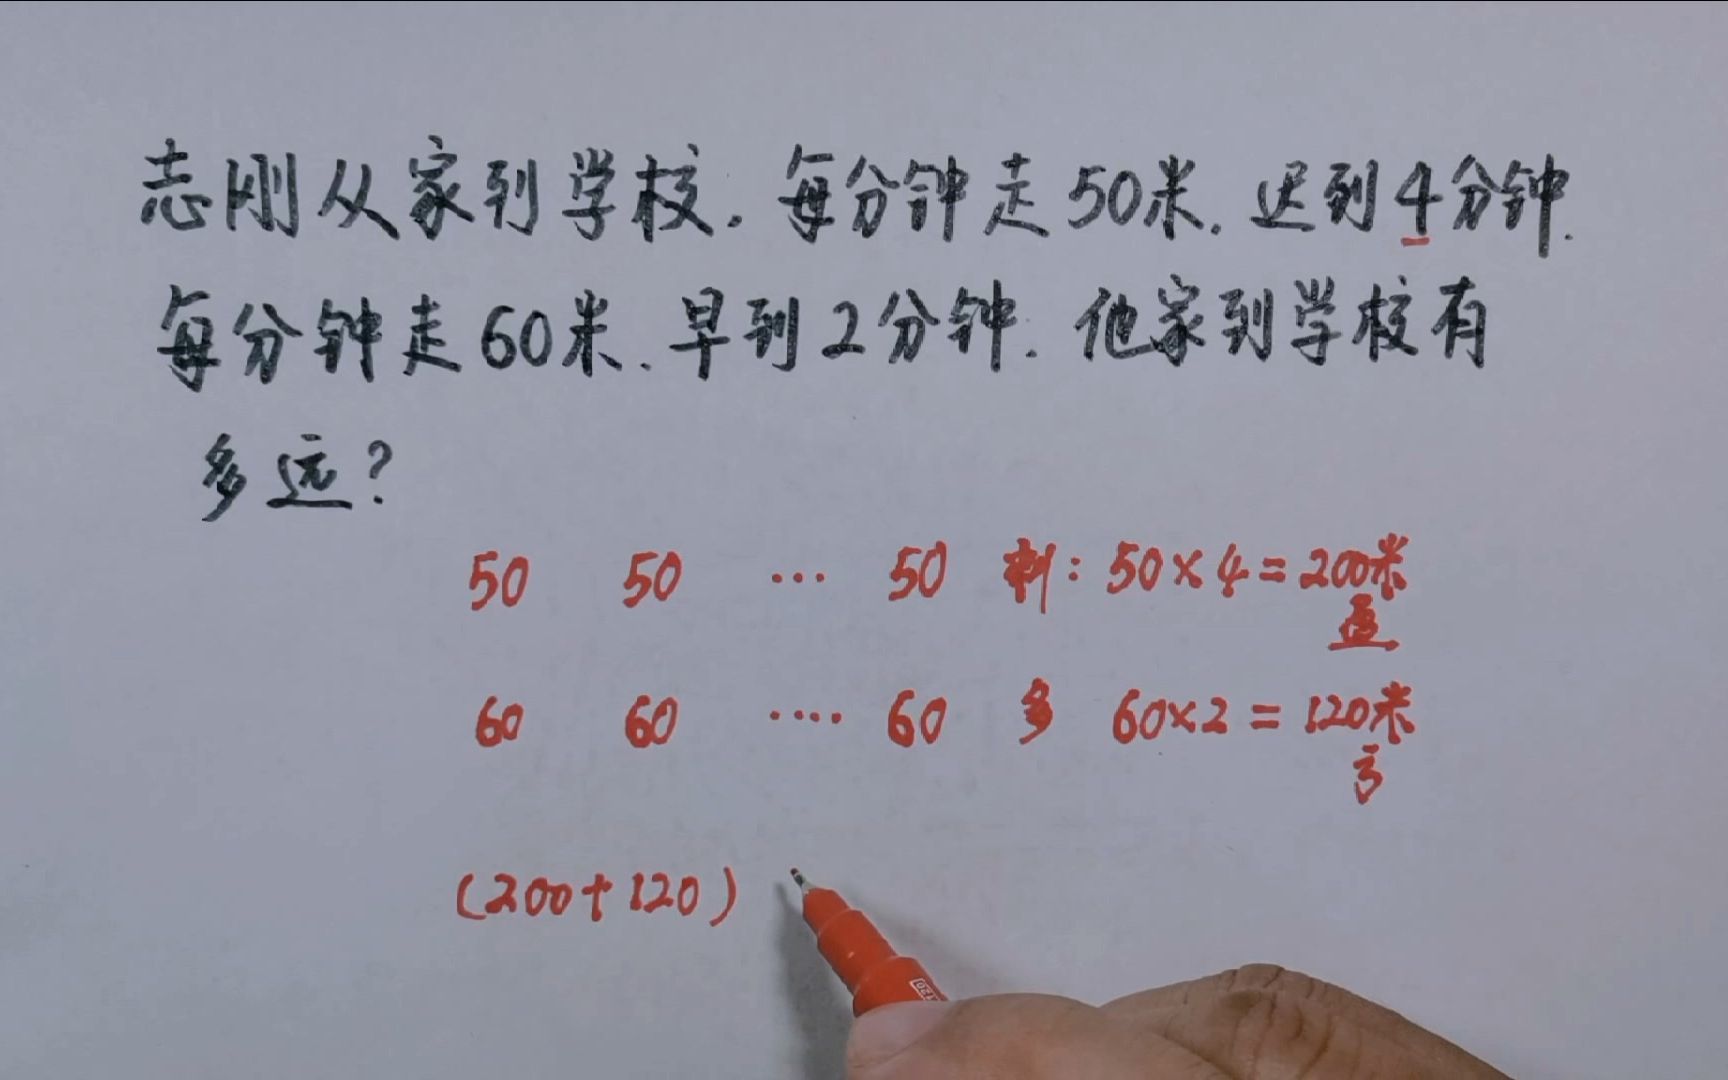 志刚从家到学校.每分钟走50米.迟到4分钟.
每分钟走60米.早到2分钟.他家到学校有
多远?
50 50 … 50 剩: 50×4=200米
盈
60 60 .... 60 多 60×2=120米
亏
(200+120)